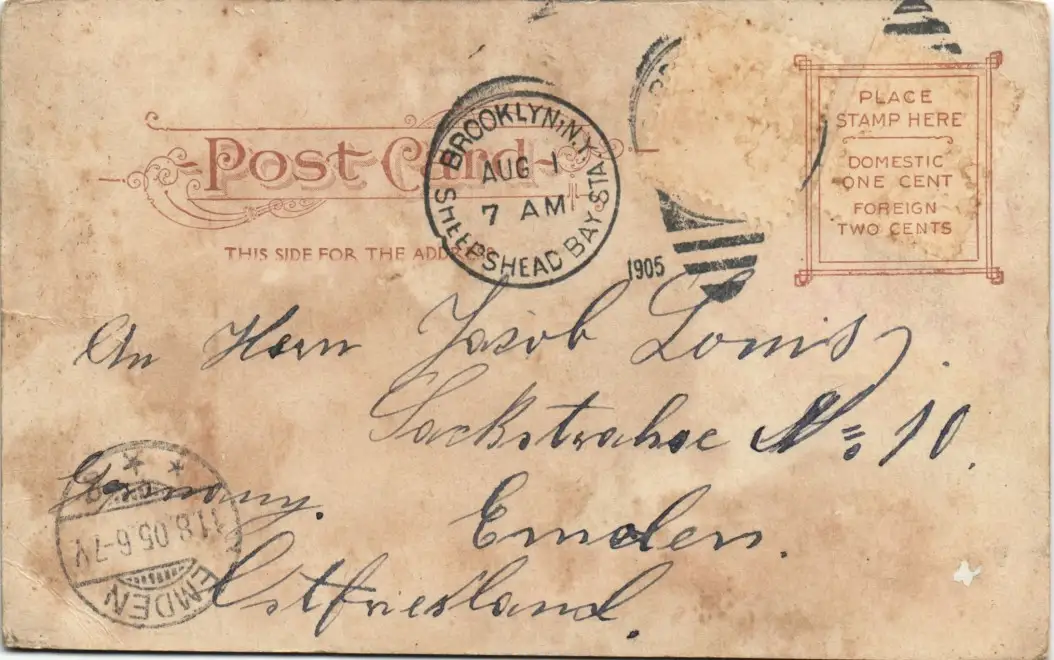 Post Card
THIS SIDE FOR THE ADDRESS
BROOKLYN, N.Y.
AUG 1
7 AM
SHEEPSHEAD BAY STA.
1905
PLACE
STAMP HERE
DOMESTIC
ONE CENT
FOREIGN
TWO CENTS
An Herrn Jakob Louis
Sackstrahse № 10.
Germany. Emden.
Ostfriesland.
EMDEN
11.8.05.6-7V